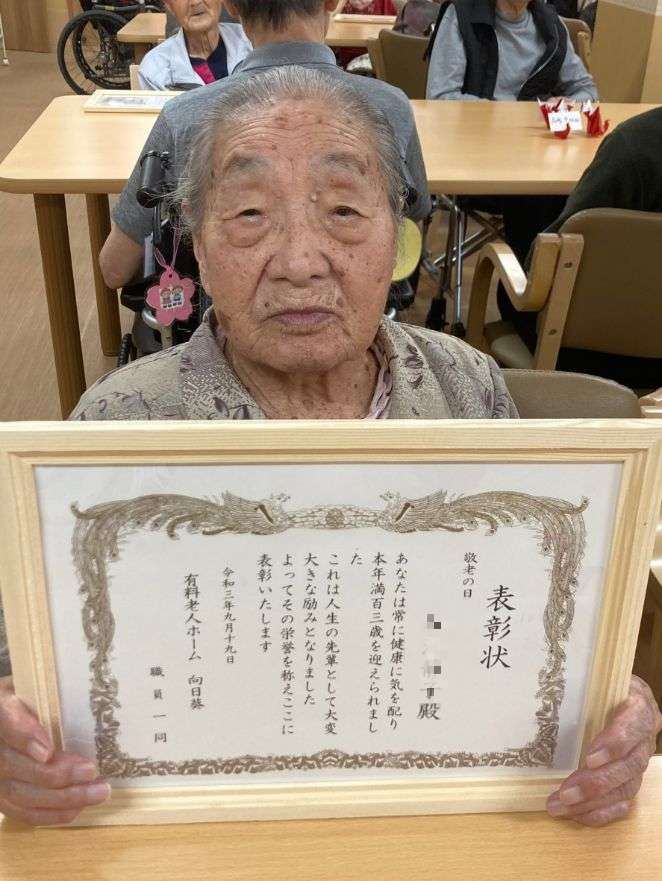 表彰状
敬老の日
殿
あなたは常に健康に気を配り
本年満百三歳を迎えられまし
た
これは人生の先輩として大変
大きな励みとなりました
よってその栄誉を称えここに
表彰いたします
令和三年九月十九日
有料老人ホーム 向日葵
職員一同